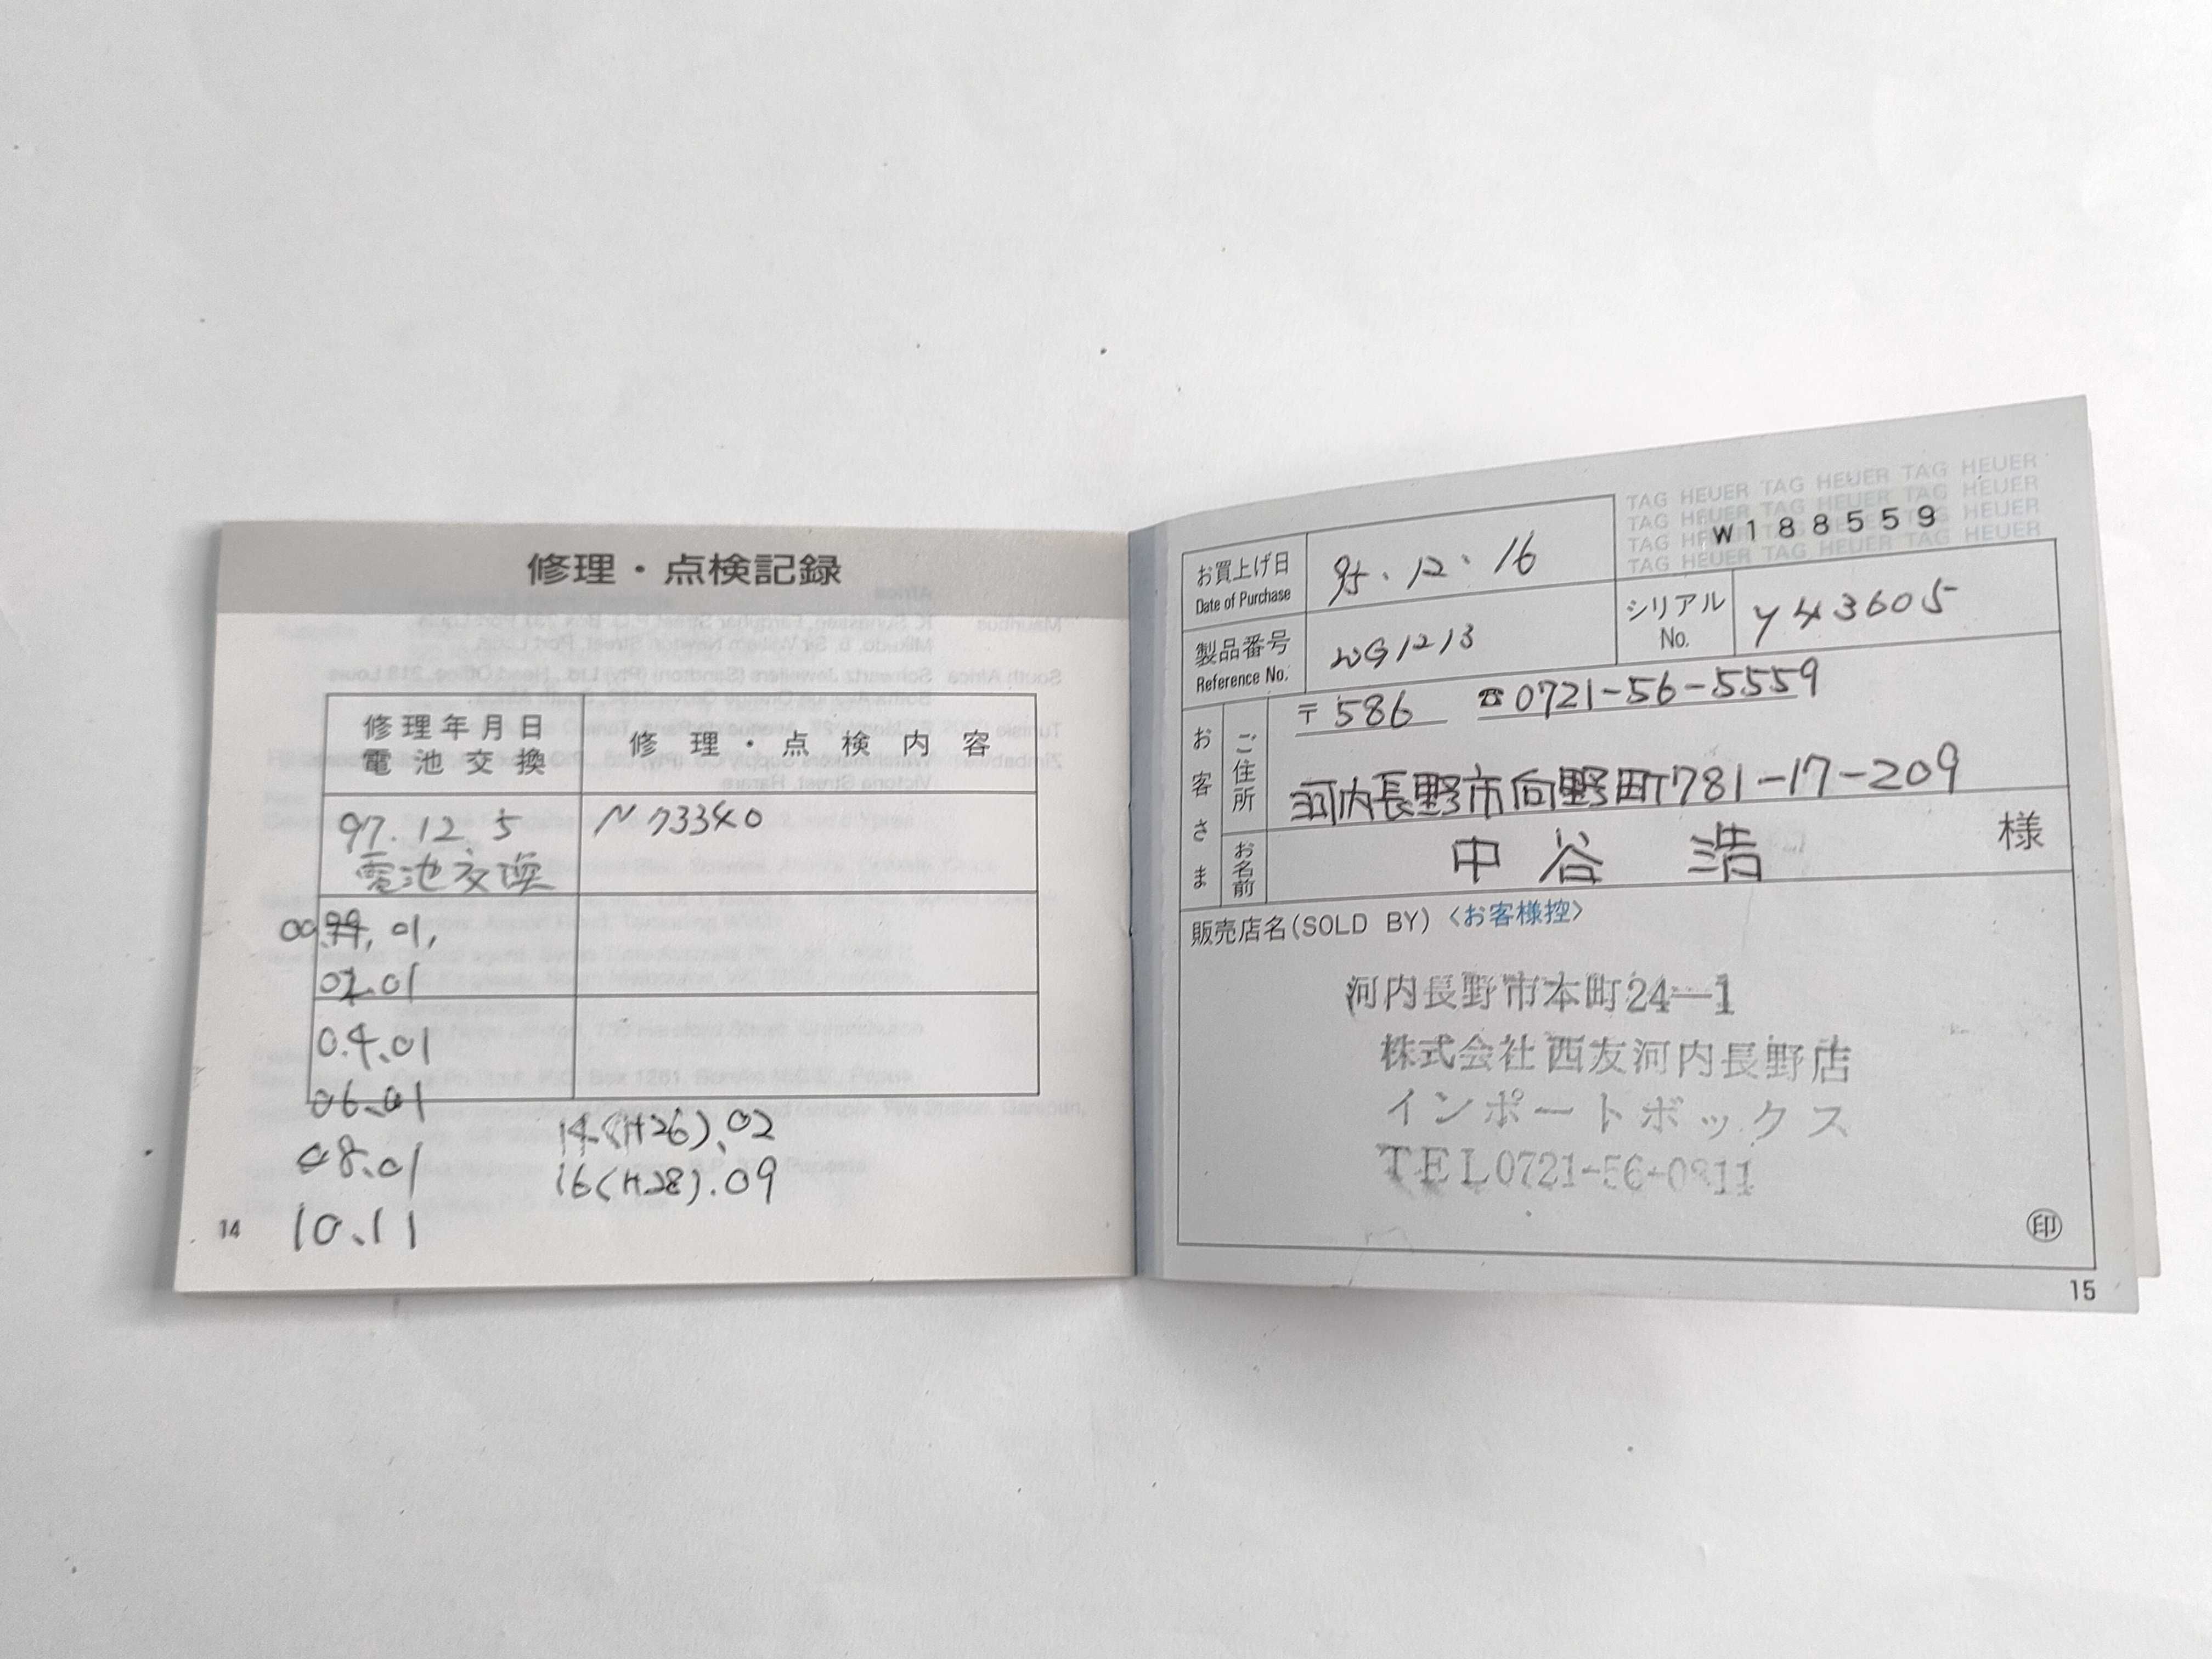 修理・点検記録
修理年月日
電池交換
修理・点検内容
97.12.5
電池交換
N73340
00.99.01.
02.01
04.01
06.01
08.01
10.11
14.(H26).02
16(H28).09
14
TAG HEUER TAG HEUER TAG HEUER
TAG HEUER TAG HEUER TAG HEUER
TAG HEUER TAG HEUER TAG HEUER
TAG HEUER TAG HEUER TAG HEUER
W188559
お買上げ日
Date of Purchase
95.12.16
製品番号
Reference No.
WG1213
シリアル
No.
Y43605
お客さま
ご住所
〒586 ☎0721-56-5559
河内長野市向野町781-17-209
お名前
中谷 浩 様
販売店名(SOLD BY)〈お客様控〉
河内長野市本町24—1
株式会社西友河内長野店
インポートボックス
TEL0721-56-0811
印
15